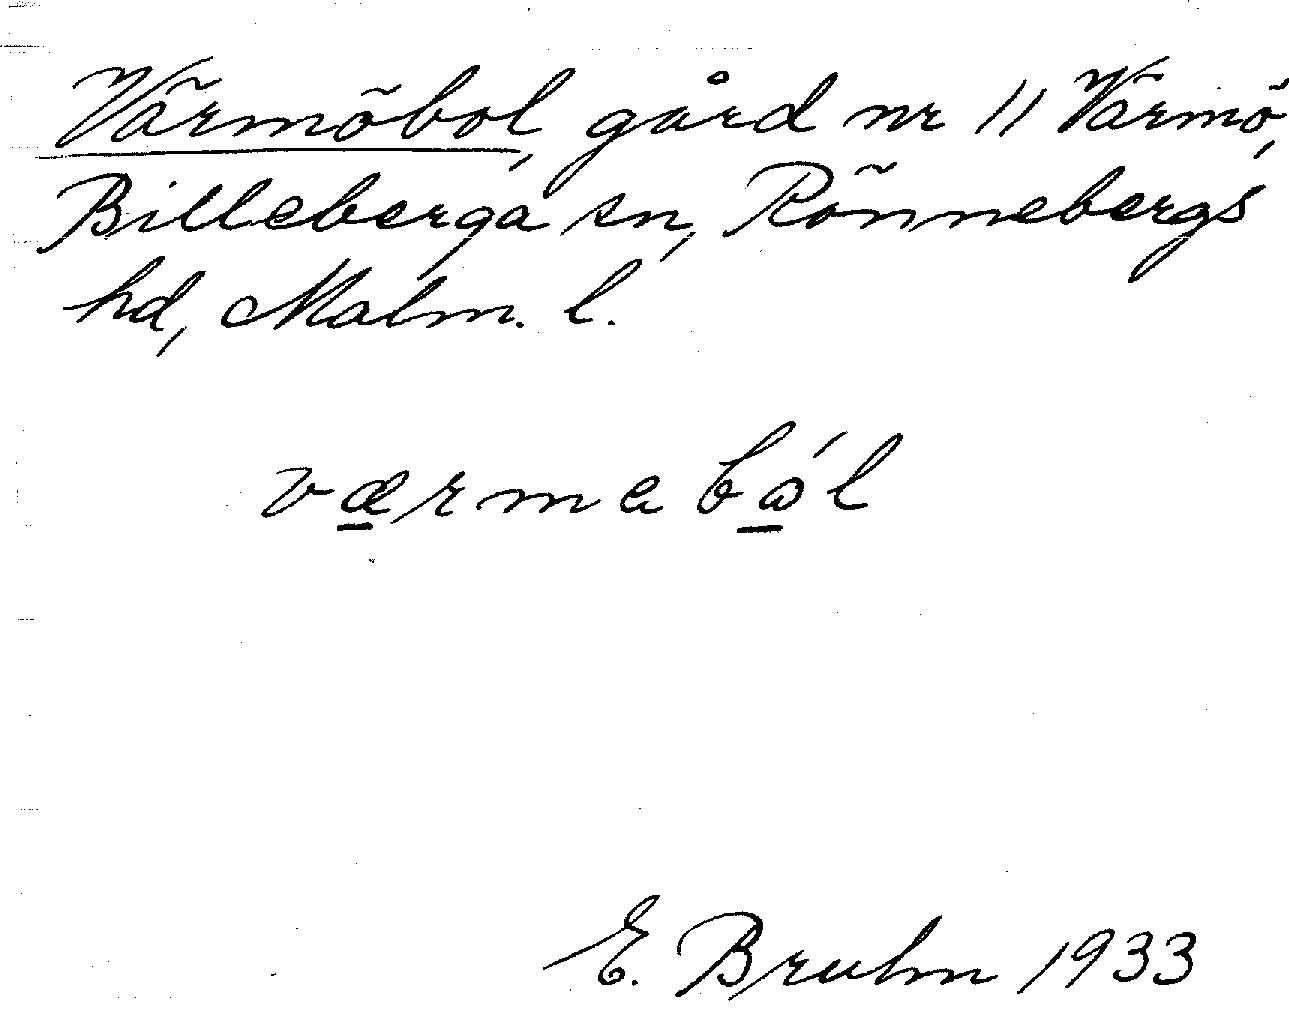 Värmöbol, gård nr 11 Värmö,
Billeberga sn, Rönnebergs
hd, Malm. l.
værmebål
E. Bruhn 1933